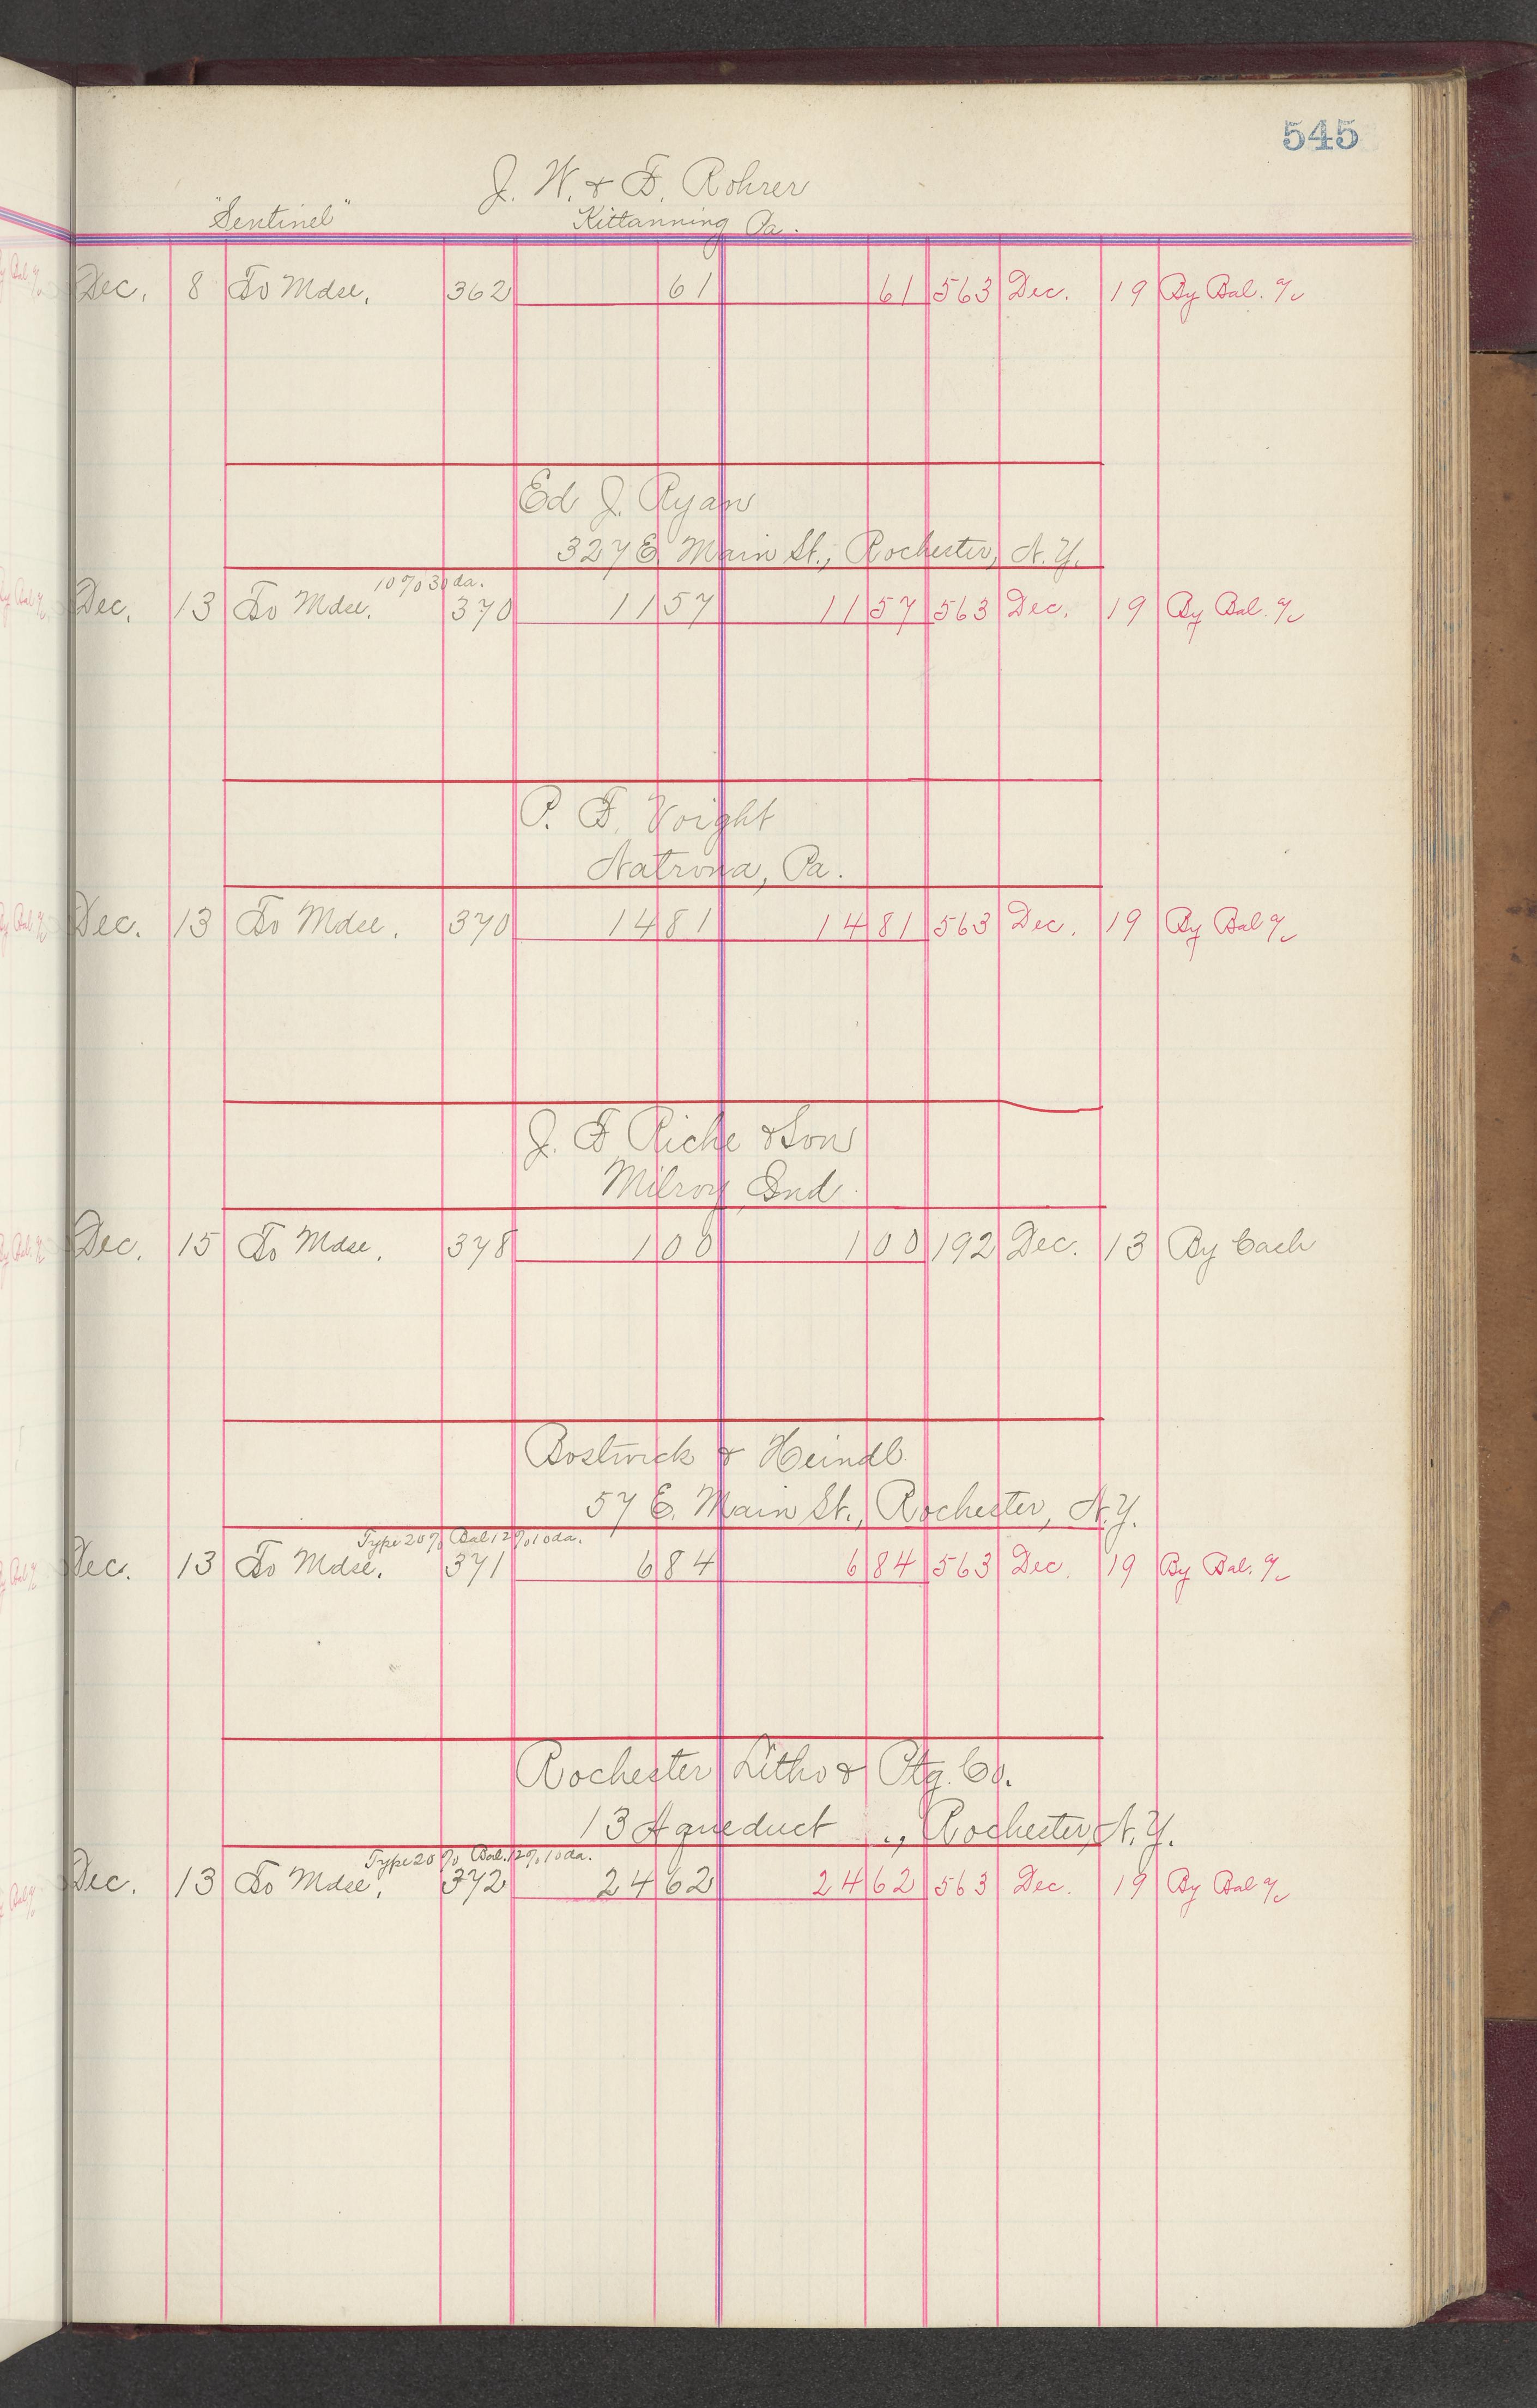 545
J. W. & F. Rohrer
"Sentinel" Kittanning Pa.
Dec. 8 To Mdse. 362 61 61 563 Dec. 19 By Bal. a/c
Ed J. Ryan
327 E. Main St., Rochester, N.Y.
10% 30 da.
Dec. 13 To Mdse. 370 11 57 11 57 563 Dec. 19 By Bal. a/c
P. F. Voight
Natrona, Pa.
Dec. 13 To Mdse. 370 14 81 14 81 563 Dec. 19 By Bal a/c
J. F Riche & Son
Milroy, Ind.
Dec. 15 To Mdse. 378 1 00 1 00 192 Dec. 13 By Cash
Bostwick & Heindl
57 E. Main St., Rochester, N.Y.
Type 20% Bal 12% 10 da.
Dec. 13 To Mdse. 371 6 84 6 84 563 Dec. 19 By Bal. a/c
Rochester Litho & Ptg. Co.
13 Aqueduct ., Rochester, N.Y.
Type 20% Bal. 12% 10 da.
Dec. 13 To Mdse. 372 24 62 24 62 563 Dec. 19 By Bal a/c